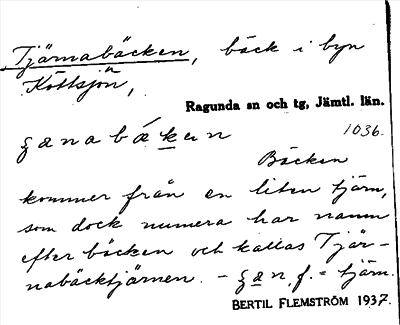 Tjärnabäcken, bäck i byn
Köttsjön,
Ragunda sn och tg, Jämtl. län.
1036.
Bäcken
kommer från en liten tjärn,
som dock numera har namn
efter bäcken och kallas Tjär-
nabäcktjärnen. –         f. = tjärn.
BERTIL FLEMSTRÖM 1937.